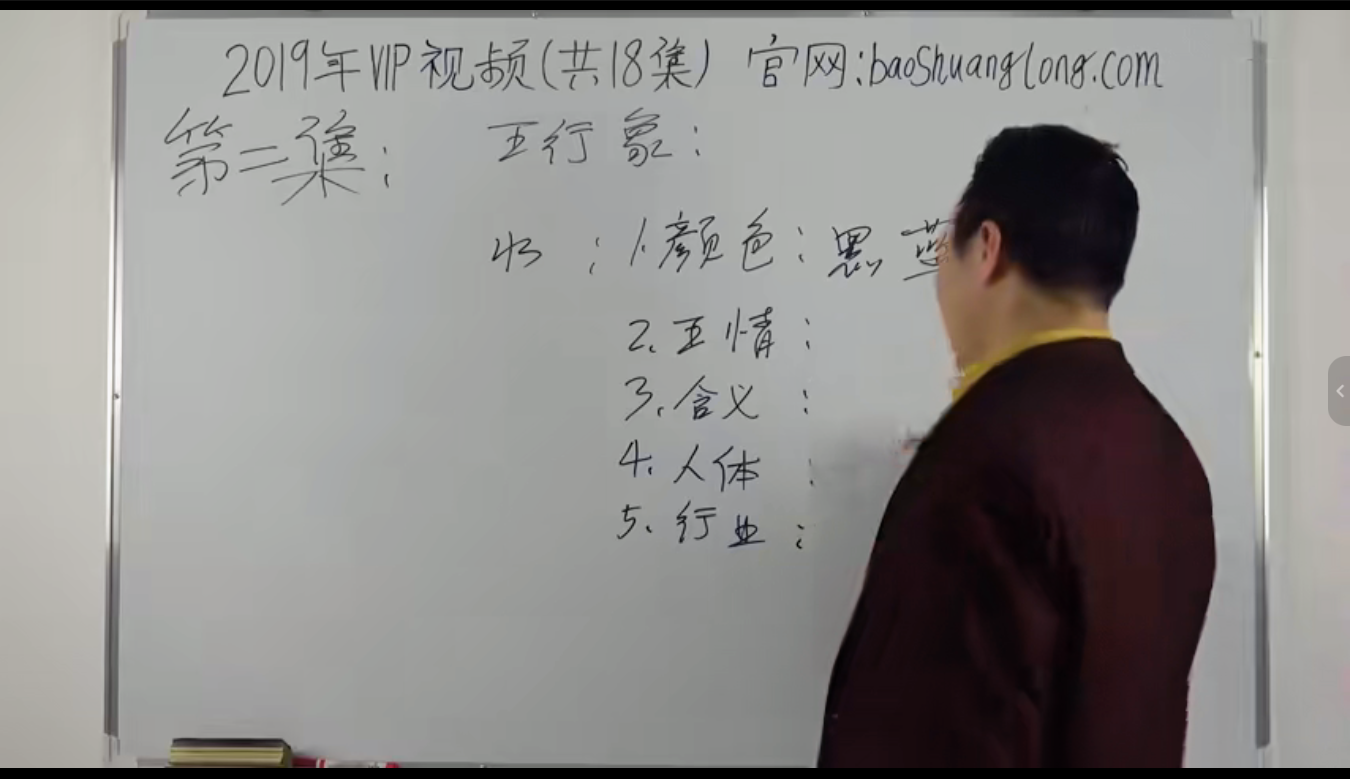 2019年VIP视频(共18集) 官网:baoshuanglong.com
第二集: 五行象:
水:1.颜色:黑 蓝
2.五情:
3.含义:
4.人体:
5.行业: